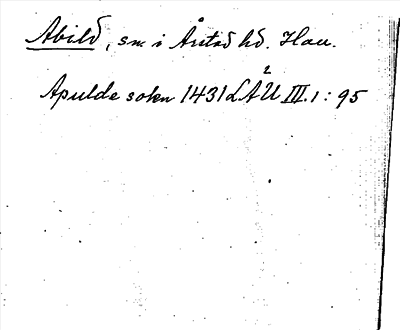 Abild, sn i Årstad hd. Hall.
Apulde sokn 1431 LÄU² III.1:95